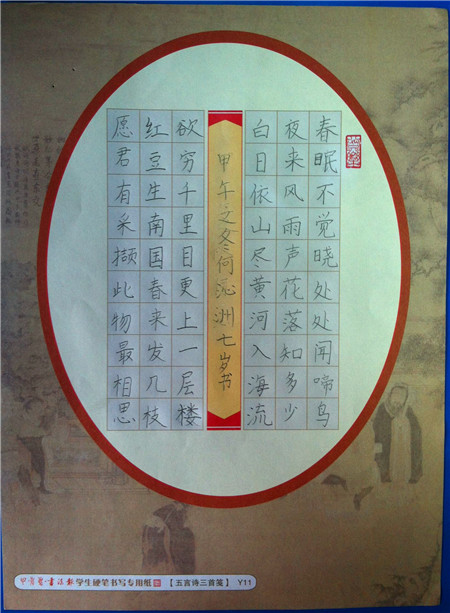 春眠不觉晓处处闻啼鸟
夜来风雨声花落知多少
白日依山尽黄河入海流
甲午之冬何洲七岁书
欲穷千里目更上一层楼
红豆生南国春来发几枝
愿君有采撷此物最相思
书法报学生硬笔书写专用纸 【五言诗三首笺】 Y11